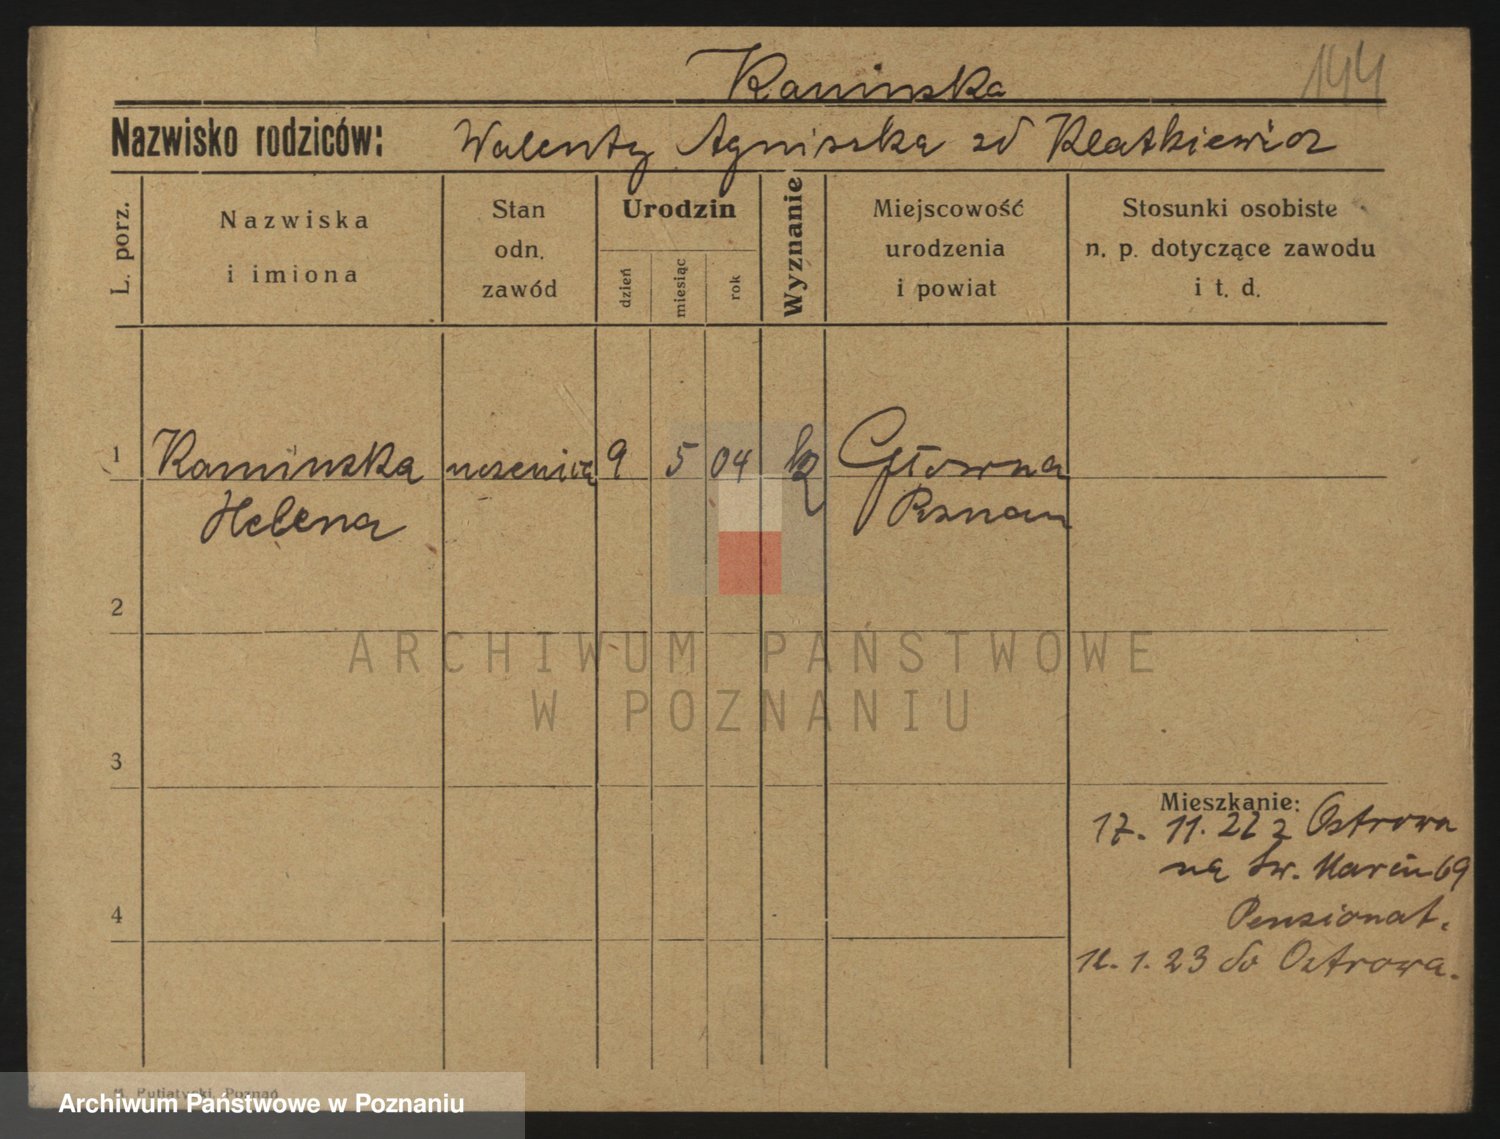 Kaminska
144
Nazwisko rodziców: Walenty Agniszka zd Klatkiewicz
L. porz.
Nazwiska
i imiona
Stan
odn.
zawód
Urodzin
dzień
miesiąc
rok
Wyznanie
Miejscowość
urodzenia
i powiat
Stosunki osobiste
n. p. dotyczące zawodu
i t. d.
1 Kaminska uczenica 9 5 04 Główna
Helena Poznan
2
3
4
Mieszkanie:
17. 11. 22 z Ostrowa
na św. Marcin 69
Pensionat.
1. 23 do Ostrowa.
ARCHIWUM PAŃSTWOWE
W POZNANIU
Putiatycki, Poznań
Archiwum Państwowe w Poznaniu